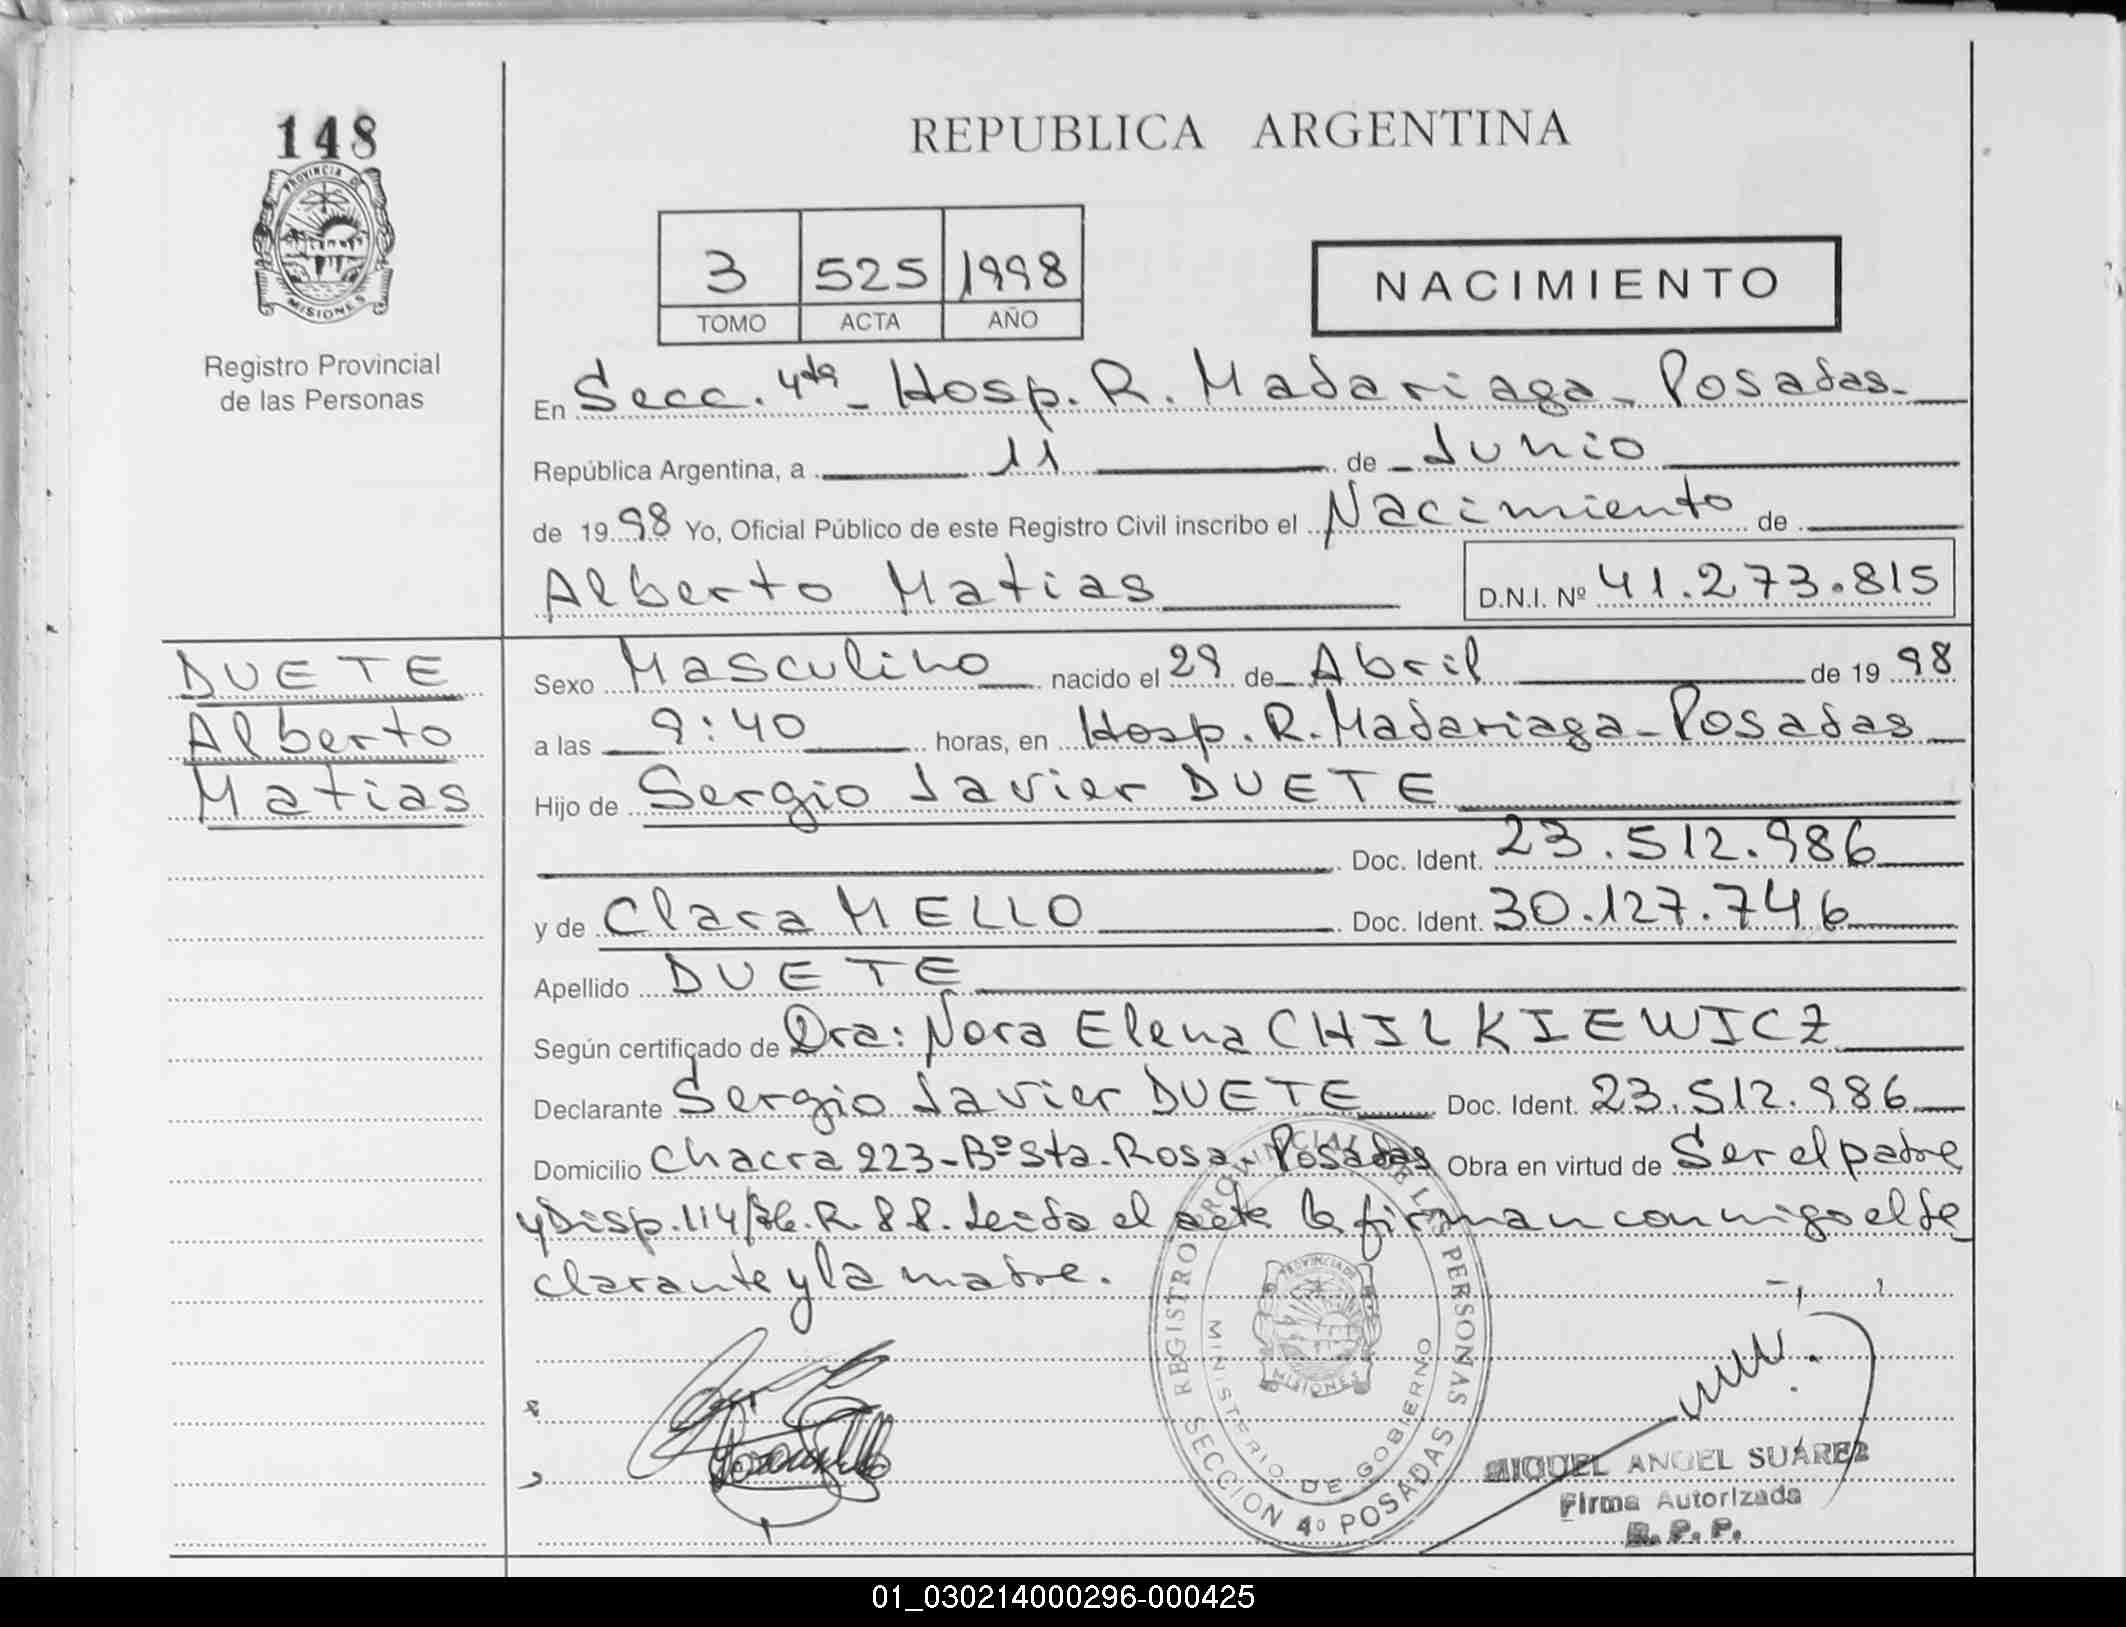 148
PROVINCIA DE
MISIONES
Registro Provincial
de las Personas
REPUBLICA ARGENTINA
3 525 1998
TOMO ACTA AÑO
NACIMIENTO
En Secc. 4ta - Hosp. R. Madariaga - Posadas.
República Argentina, a 11 de Junio
de 1998 Yo, Oficial Público de este Registro Civil inscribo el Nacimiento de
Alberto Matias D.N.I. Nº 41.273.815
DUETE
Alberto
Matias
Sexo Masculino nacido el 29 de Abril de 1998
a las 9:40 horas, en Hosp. R. Madariaga - Posadas
Hijo de Sergio Javier DUETE
Doc. Ident. 23.512.986
y de Clara MELLO Doc. Ident. 30.127.746
Apellido DUETE
Según certificado de Dra: Nora Elena CHILKIEWICZ
Declarante Sergio Javier DUETE Doc. Ident. 23.512.986
Domicilio Chacra 223 - Bº Sta. Rosa Posadas Obra en virtud de Ser el padre
y Disp. 114/ R. 88. Leida el acta la firman conmigo el de
clarante y la madre.
REGISTRO PROVINCIAL DE LAS PERSONAS
MINISTERIO DE GOBIERNO
PROVINCIA DE
MISIONES
SECCION 4º POSADAS
MIGUEL ANGEL SUÁREZ
Firma Autorizada
R. P. P.
01_030214000296-000425